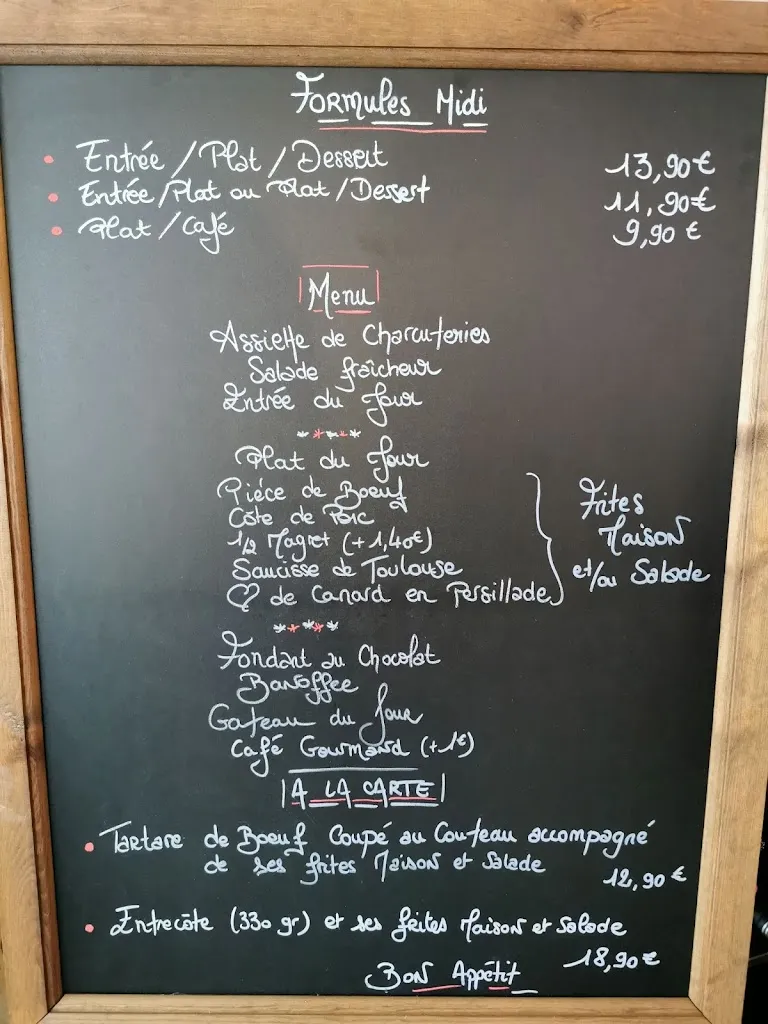 Formules Midi
• Entrée / Plat / Dessert 13,90€
• Entrée / Plat ou Plat / Dessert 11,90€
• Plat / Café 9,90 €
Menu
Assiette de Charcuteries
Salade fraîcheur
Entrée du Jour
*****
Plat du Jour
Piéce de Boeuf
Côte de Porc
1/2 Magret (+1,40€)
Saucisse de Toulouse
♡ de Canard en Persillade
Frites
Maison
et/ou Salade
*****
Fondant au Chocolat
Banoffee
Gateau du Jour
Café Gourmand (+1€)
A LA CARTE
• Tartare de Boeuf Coupé au Couteau accompagné
de ses frites Maison et Salade 12,90 €
• Entrecôte (330 gr) et ses frites Maison et Salade
18,90 €
Bon Appétit